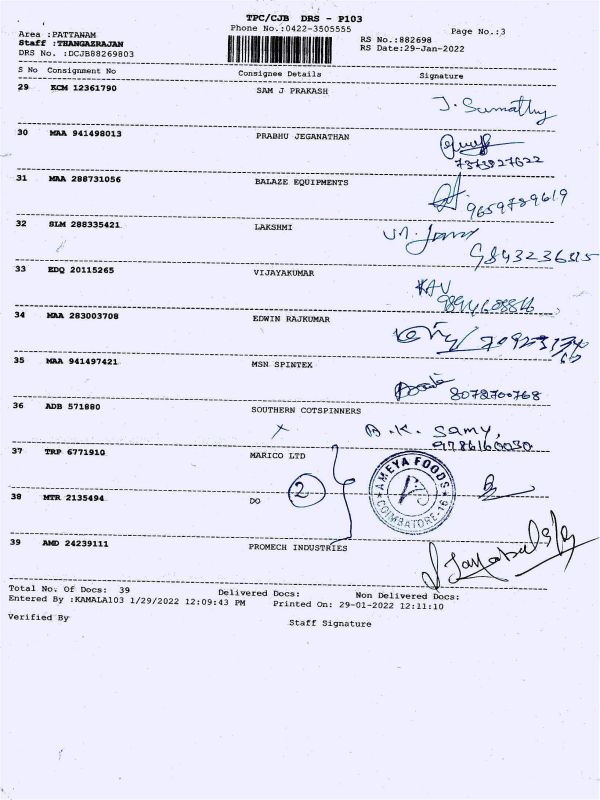 TPC/CJB DRS - P103
Phone No.:0422-3505555
Page No.:3
Area :PATTANAM
RS No.:882698
Staff :THANGAZRAJAN
RS Date:29-Jan-2022
DRS No. :DCJB88269803
S No Consignment No Consignee Details Signature
29 KCM 12361790 SAM J PRAKASH
J. Sumathy
30 MAA 941498013 PRABHU JEGANATHAN
7373827622
31 MAA 288731056 BALAZE EQUIPMENTS
9659789619
32 SLM 288335421 LAKSHMI
33 EDQ 20115265 VIJAYAKUMAR
KAV
34 MAA 283003708 EDWIN RAJKUMAR
35 MAA 941497421 MSN SPINTEX
8072700768
36 ADB 571880 SOUTHERN COTSPINNERS
A.K. Samy,
9786160030
37 TRP 6771910 MARICO LTD
AMEYA FOODS
COIMBATORE-16
2
38 MTR 2135494 DO
39 AMD 24239111 PROMECH INDUSTRIES
Total No. Of Docs: 39 Delivered Docs: Non Delivered Docs:
Entered By :KAMALA103 1/29/2022 12:09:43 PM Printed On: 29-01-2022 12:11:10
Verified By
Staff Signature